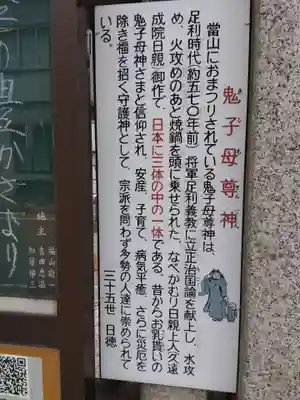 鬼子母尊神
當山におまつりされている鬼子母尊神は、
足利時代(約五七〇年前)将軍足利義教に立正治国論を献上し、水攻
め、火攻めのあと焼鍋を頭に乗せられた、なべかむり日親上人(久遠
成院日親)御作で、日本に三体の中の一体である。昔からお乳貰いの
鬼子母神さまと信仰され、安産、子育て、病気平癒、さらに災厄を
除き福を招く守護神として、宗派を問わず多勢の人達に崇められて
いる。
三十五世 日徳